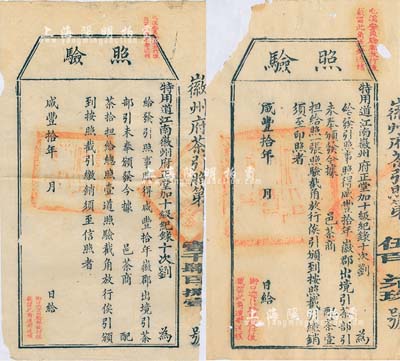 照驗
徽州府茶引照第
號
特用道江南徽州府正堂加十級紀錄十次劉　為
給發引照事照得咸豐拾年徽郡出境引茶
部引未奉頒發今據　邑茶商　配
茶拾担給總照壹道驗截角放行俟引頒
到按照截引繳銷須至信照者
咸豐拾年　月　日給
照驗
徽州府茶引照第
號
特用道江南徽州府正堂加十級紀錄十次劉　為
給發引照事照得咸豐拾年徽郡出境引茶部引
未奉頒發今據　邑茶商　配茶壹
担給照壹張照驗截角放行俟引頒到按照截繳銷
須至印照者
咸豐拾年　月　日給